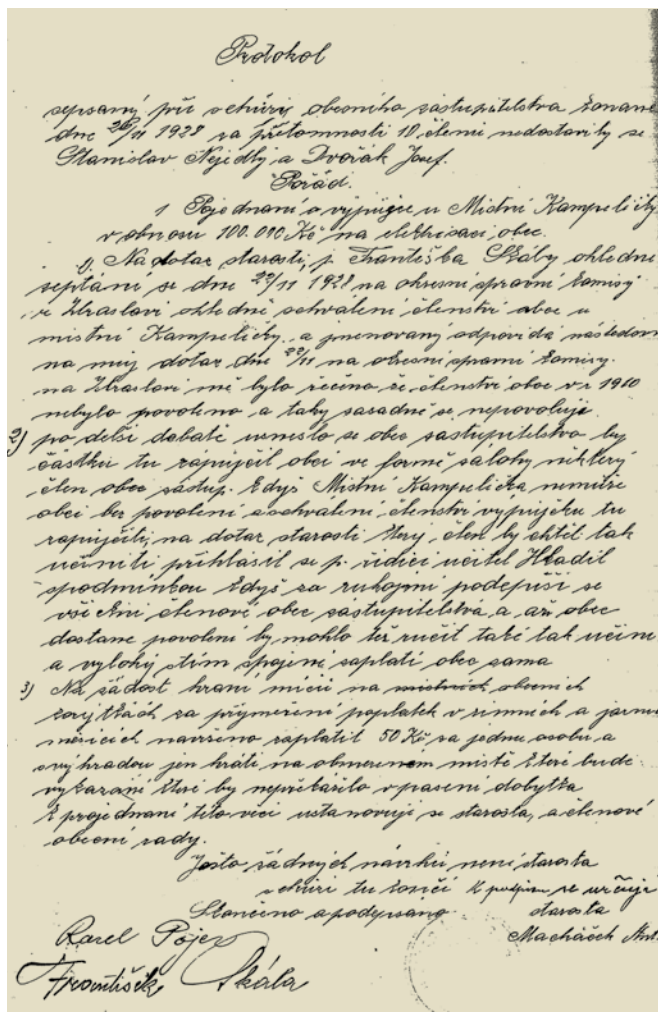 Protokol
sepsaný při schůzi obecního zastupitelstva konané
dne 26/11 1928 za přítomnosti 10 členů nedostavily se
Stanislav Nejedlý a Dvořák Josef.
Pořád.
1 Pojednaní o výpujčce u Místní Kampeličky
v obnosu 100.000 Kč na elektrisaci obce.
1). Na dotaz starosti p. Františka Skály ohledně
septání se dne 22/11 1928 na okresní spravní komisy
ze Zbraslavi ohledně schválení členství obce u
místní Kampeličky, a jmenovaný odpovídá následovn
na můj dotaz dne 22/11 na okresní spravní komisy.
na Zbraslavi mě bylo řečeno že členství obce v r 1910
nebylo povoleno a taky zasadně se nepovoluje.
2) po delší dabatě usneslo se obec zastupitelstva by
částku tu zápujčil obci ve formě zálohy některý
člen obec zástup. když Místní Kampelička nemůže
obci bez povolení a schválení členství vypujčku tu
zapujčiti, na dotaz starosti který člen by chtěl tak
učiniti přihlásil se p. řídící učitel Hladil
spodmínkou když za rukojmí podepíší se
všickni členové obec zastupitelstva, a až obec
dostane povolení by mohlo též ručit také tak učiní
a vylohy stím spojené zaplatí obec sama
3) Na žádost hraní míčů na místních obecních
korytkách za přiměření poplatek v zimních a jarní
měsících navrženo zaplatil 50 Kč za jednu osobu a
svýhradou jen hráti na obmezenem místě které bude
vykazaní které by nepřekáželo v pasení dobytka
k projednaní této věci ustanovují se starosta, a členové
obecní rady.
Ješto žádných návrhů není starosta
schůzi tu končí K podpisu se určují
Skončeno a podepsáno starosta
Karel Pojer Macháček Ant.
František Skála